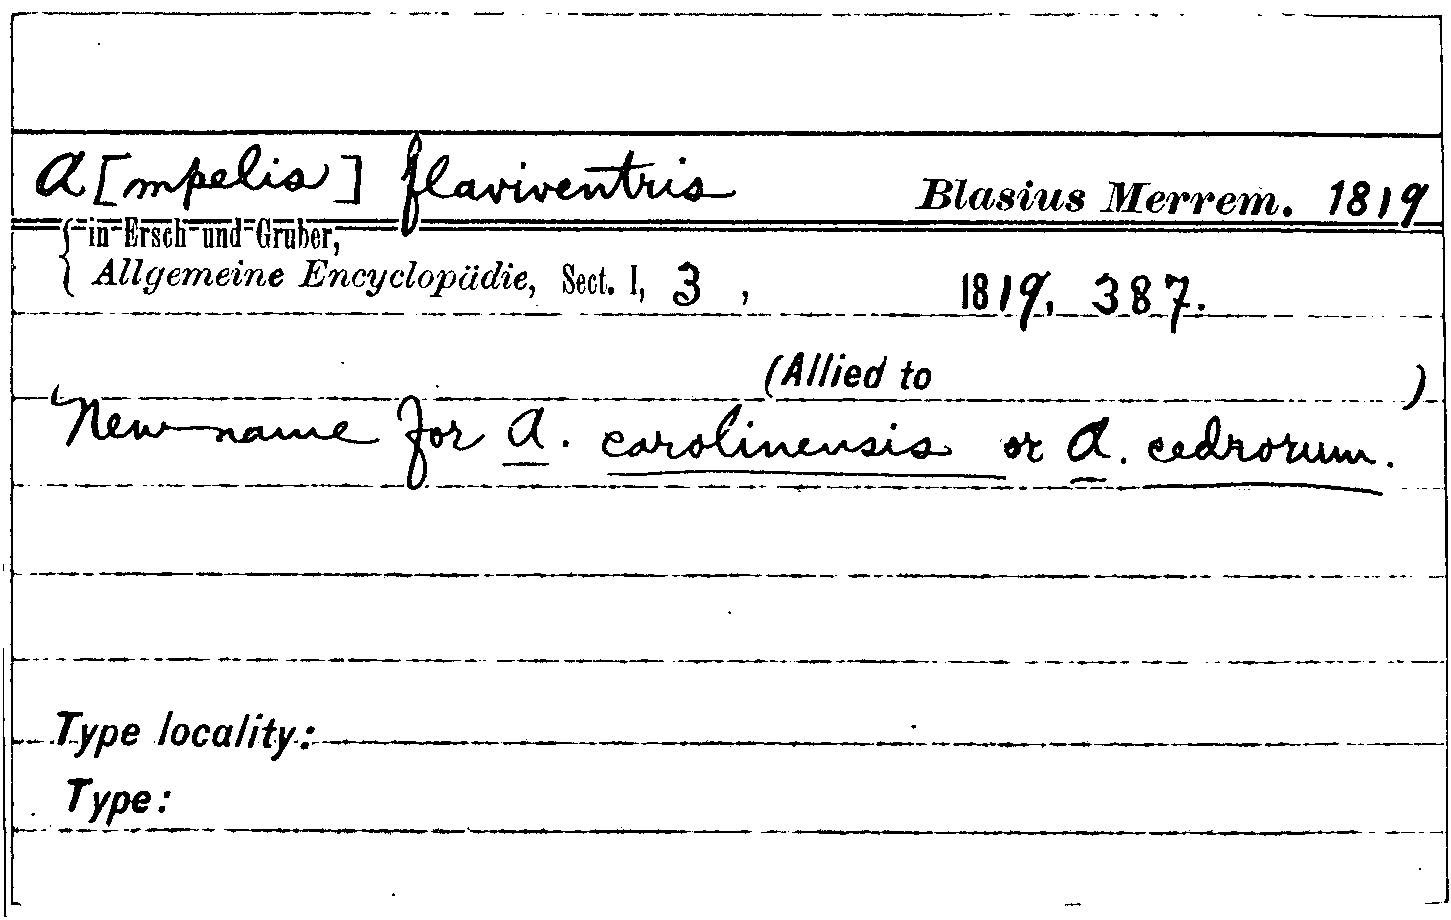 A[mpelis] flaviventris Blasius Merrem. 1819
in Ersch und Gruber,
Allgemeine Encyclopädie, Sect. I, 3, 1819, 387.
(Allied to )
New name for A. carolinensis or A. cedrorum.
Type locality:
Type: